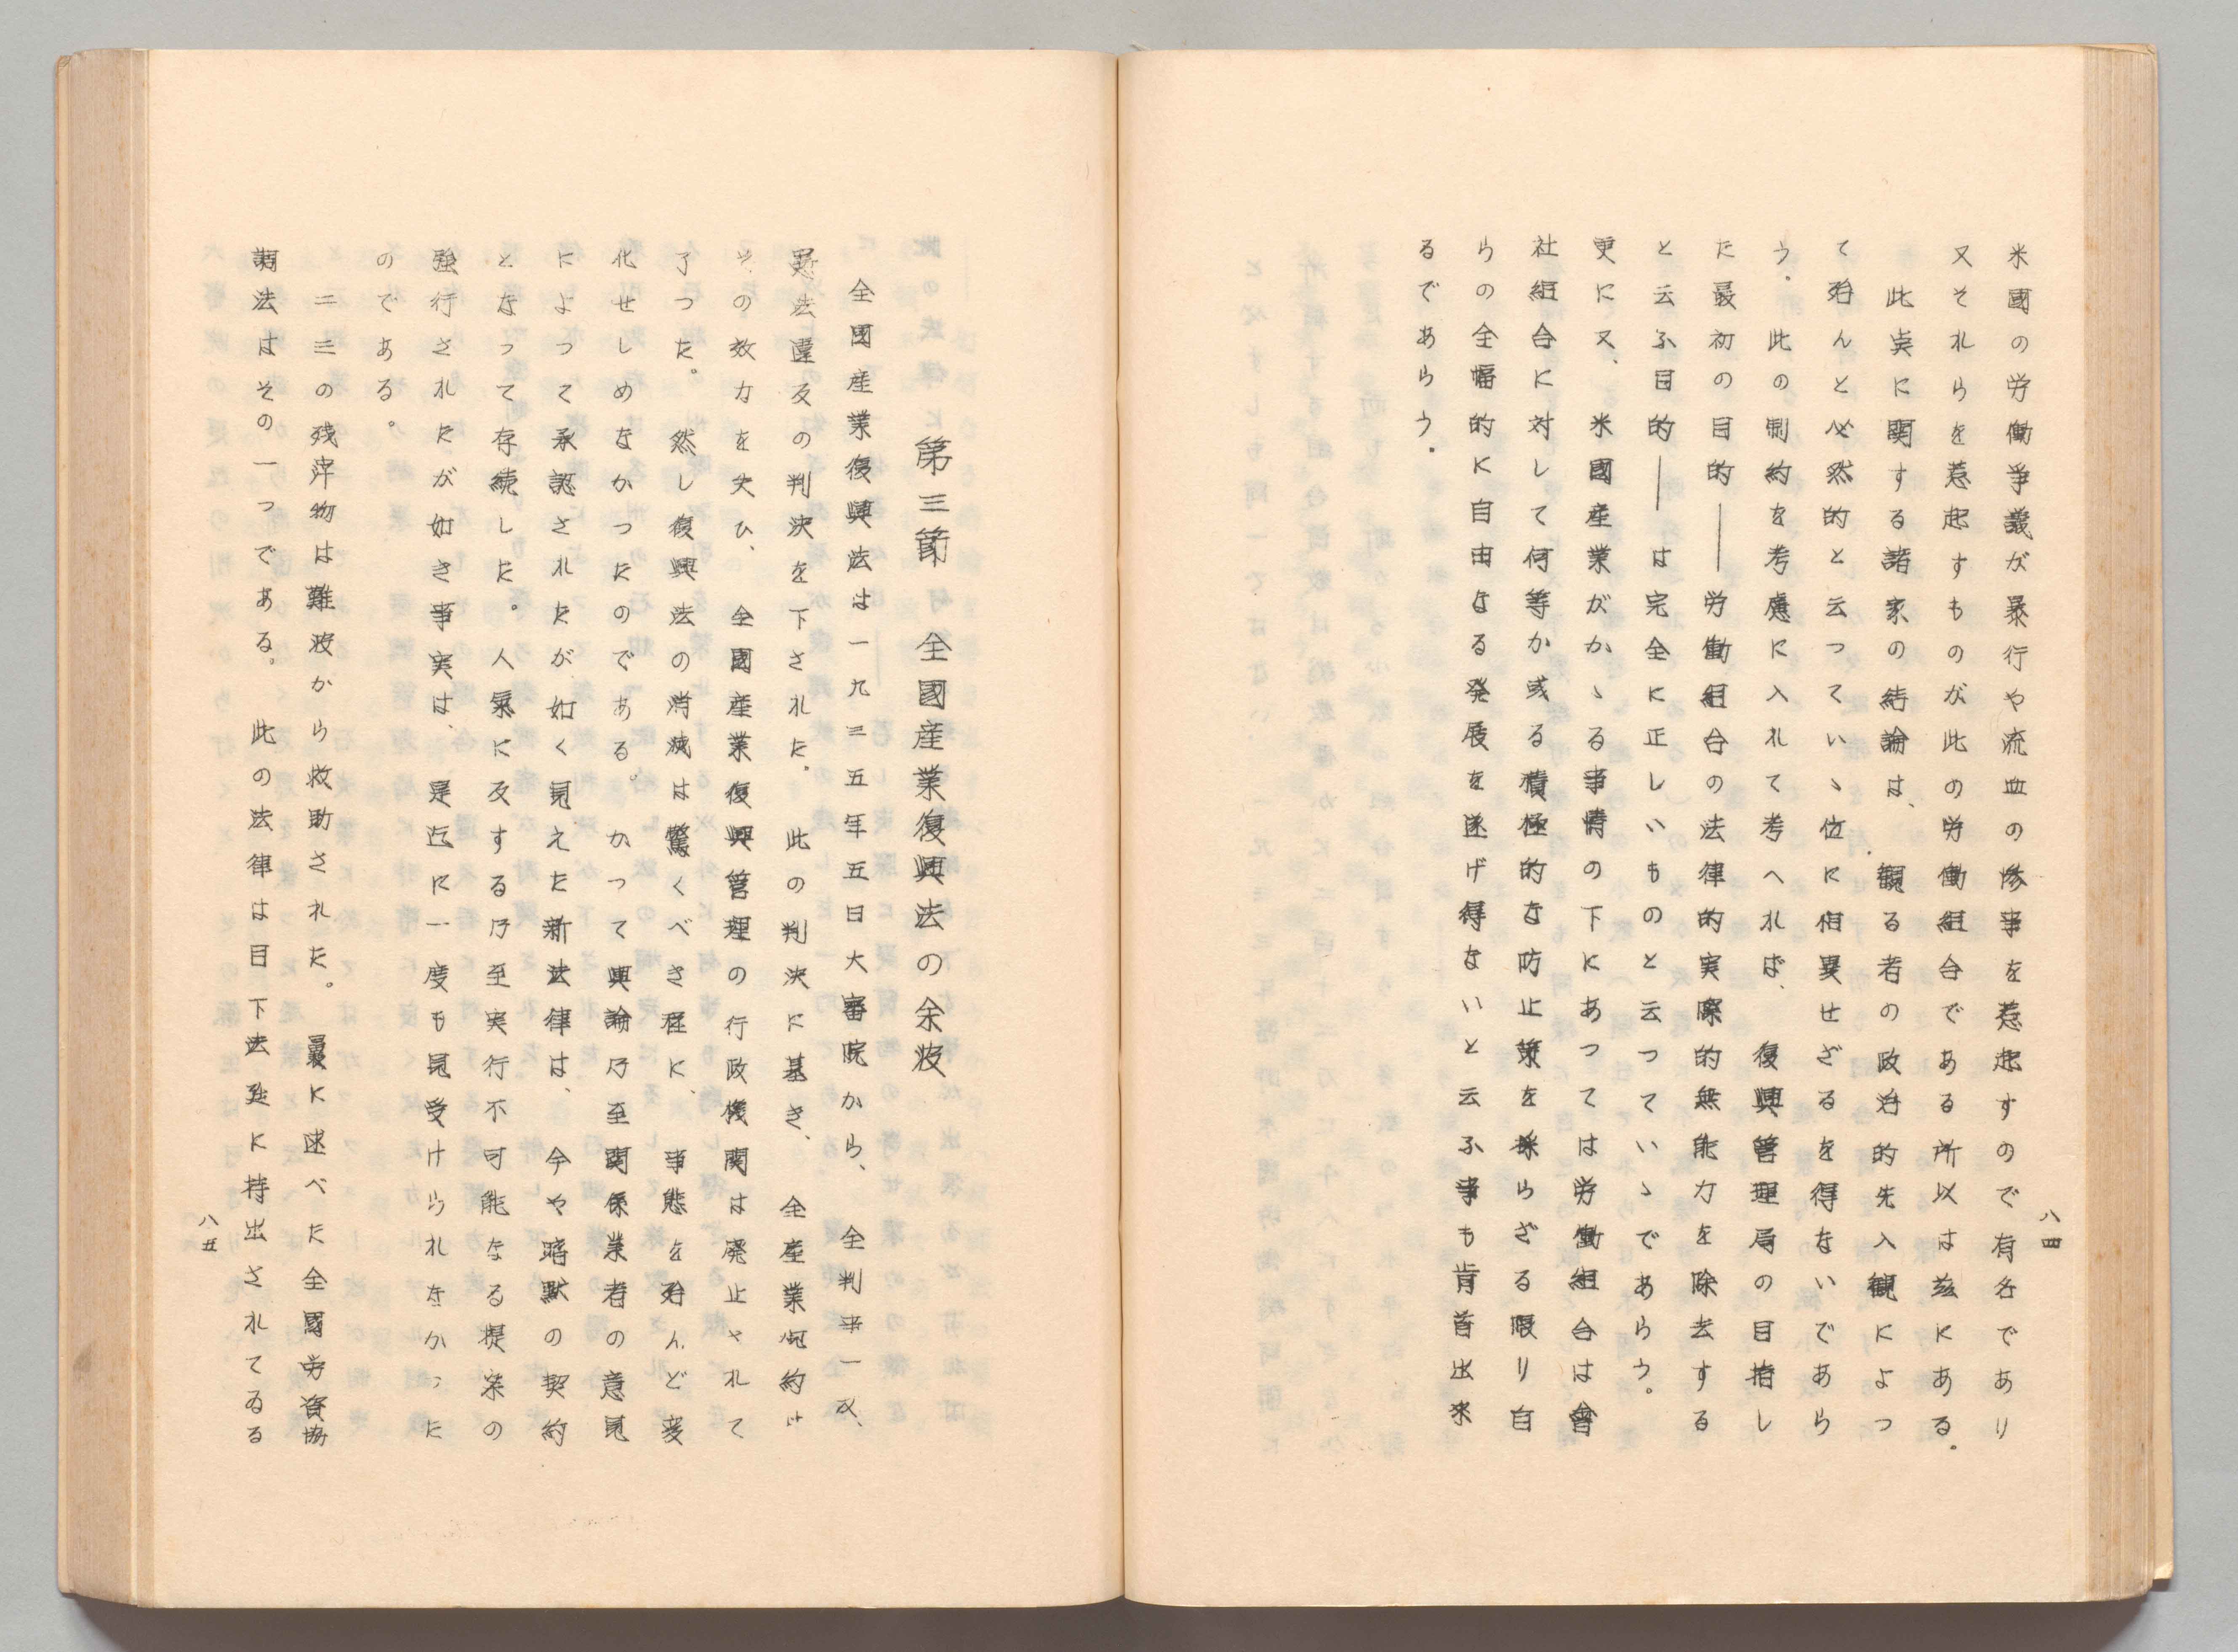 八四
米國の労働爭議が暴行や流血の惨事を惹起すので有名であり
又それらを惹起すものが此の労働組合である所以は茲にある。
此奌に関する諸家の結論は、観る者の政治的先入観によつ
て殆んど必然的と云つていゝ位に相異せざるを得ないであら
う。此の制約を考慮に入れて考へれば、復興管理局の目指し
た最初の目的――労働組合の法律的実際的無能力を除去する
と云ふ目的――は完全に正しいものと云つていゝであらう。
更に又、米國産業がかゝる事情の下にあつては労働組合は會
社組合に対して何等か或る積極的な防止策を採らざる限り自
らの全幅的に自由なる発展を遂げ得ないと云ふ事も肯首出来
るであらう。
第三節 全國産業復興法の余波
全國産業復興法は一九三五年五日大審院から、全判事一致、
憲法違反の判決を下された。此の判決に基き、全産業規約は
その效力を失ひ、全國産業復興管理の行政機関は廃止されて
了つた。然し復興法の消滅は驚くべき程に、事態を殆んど変
化せしめなかつたのである。かつて輿論乃至関係業者の意見
によつて承認されたが如く見えた新法律は、今や暗黙の契約
となつて存続した。人氣に反する乃至実行不可能なる提案の
強行されたが如き事実は、是迄に一度も見受けられなかつた
のである。
二三の残滓物は難波から救助された。最に述べた全國労資協
調法はその一つである。此の法律は目下法廷に持出されてゐる
八五